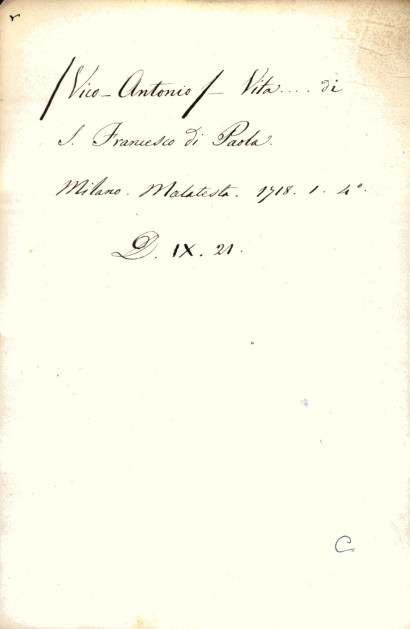 /Vico - Antonio/ - Vita .... di
S. Francesco di Paola.
Milano. Malatesta. 1718. 1. 4°.
D. IX. 21.
C